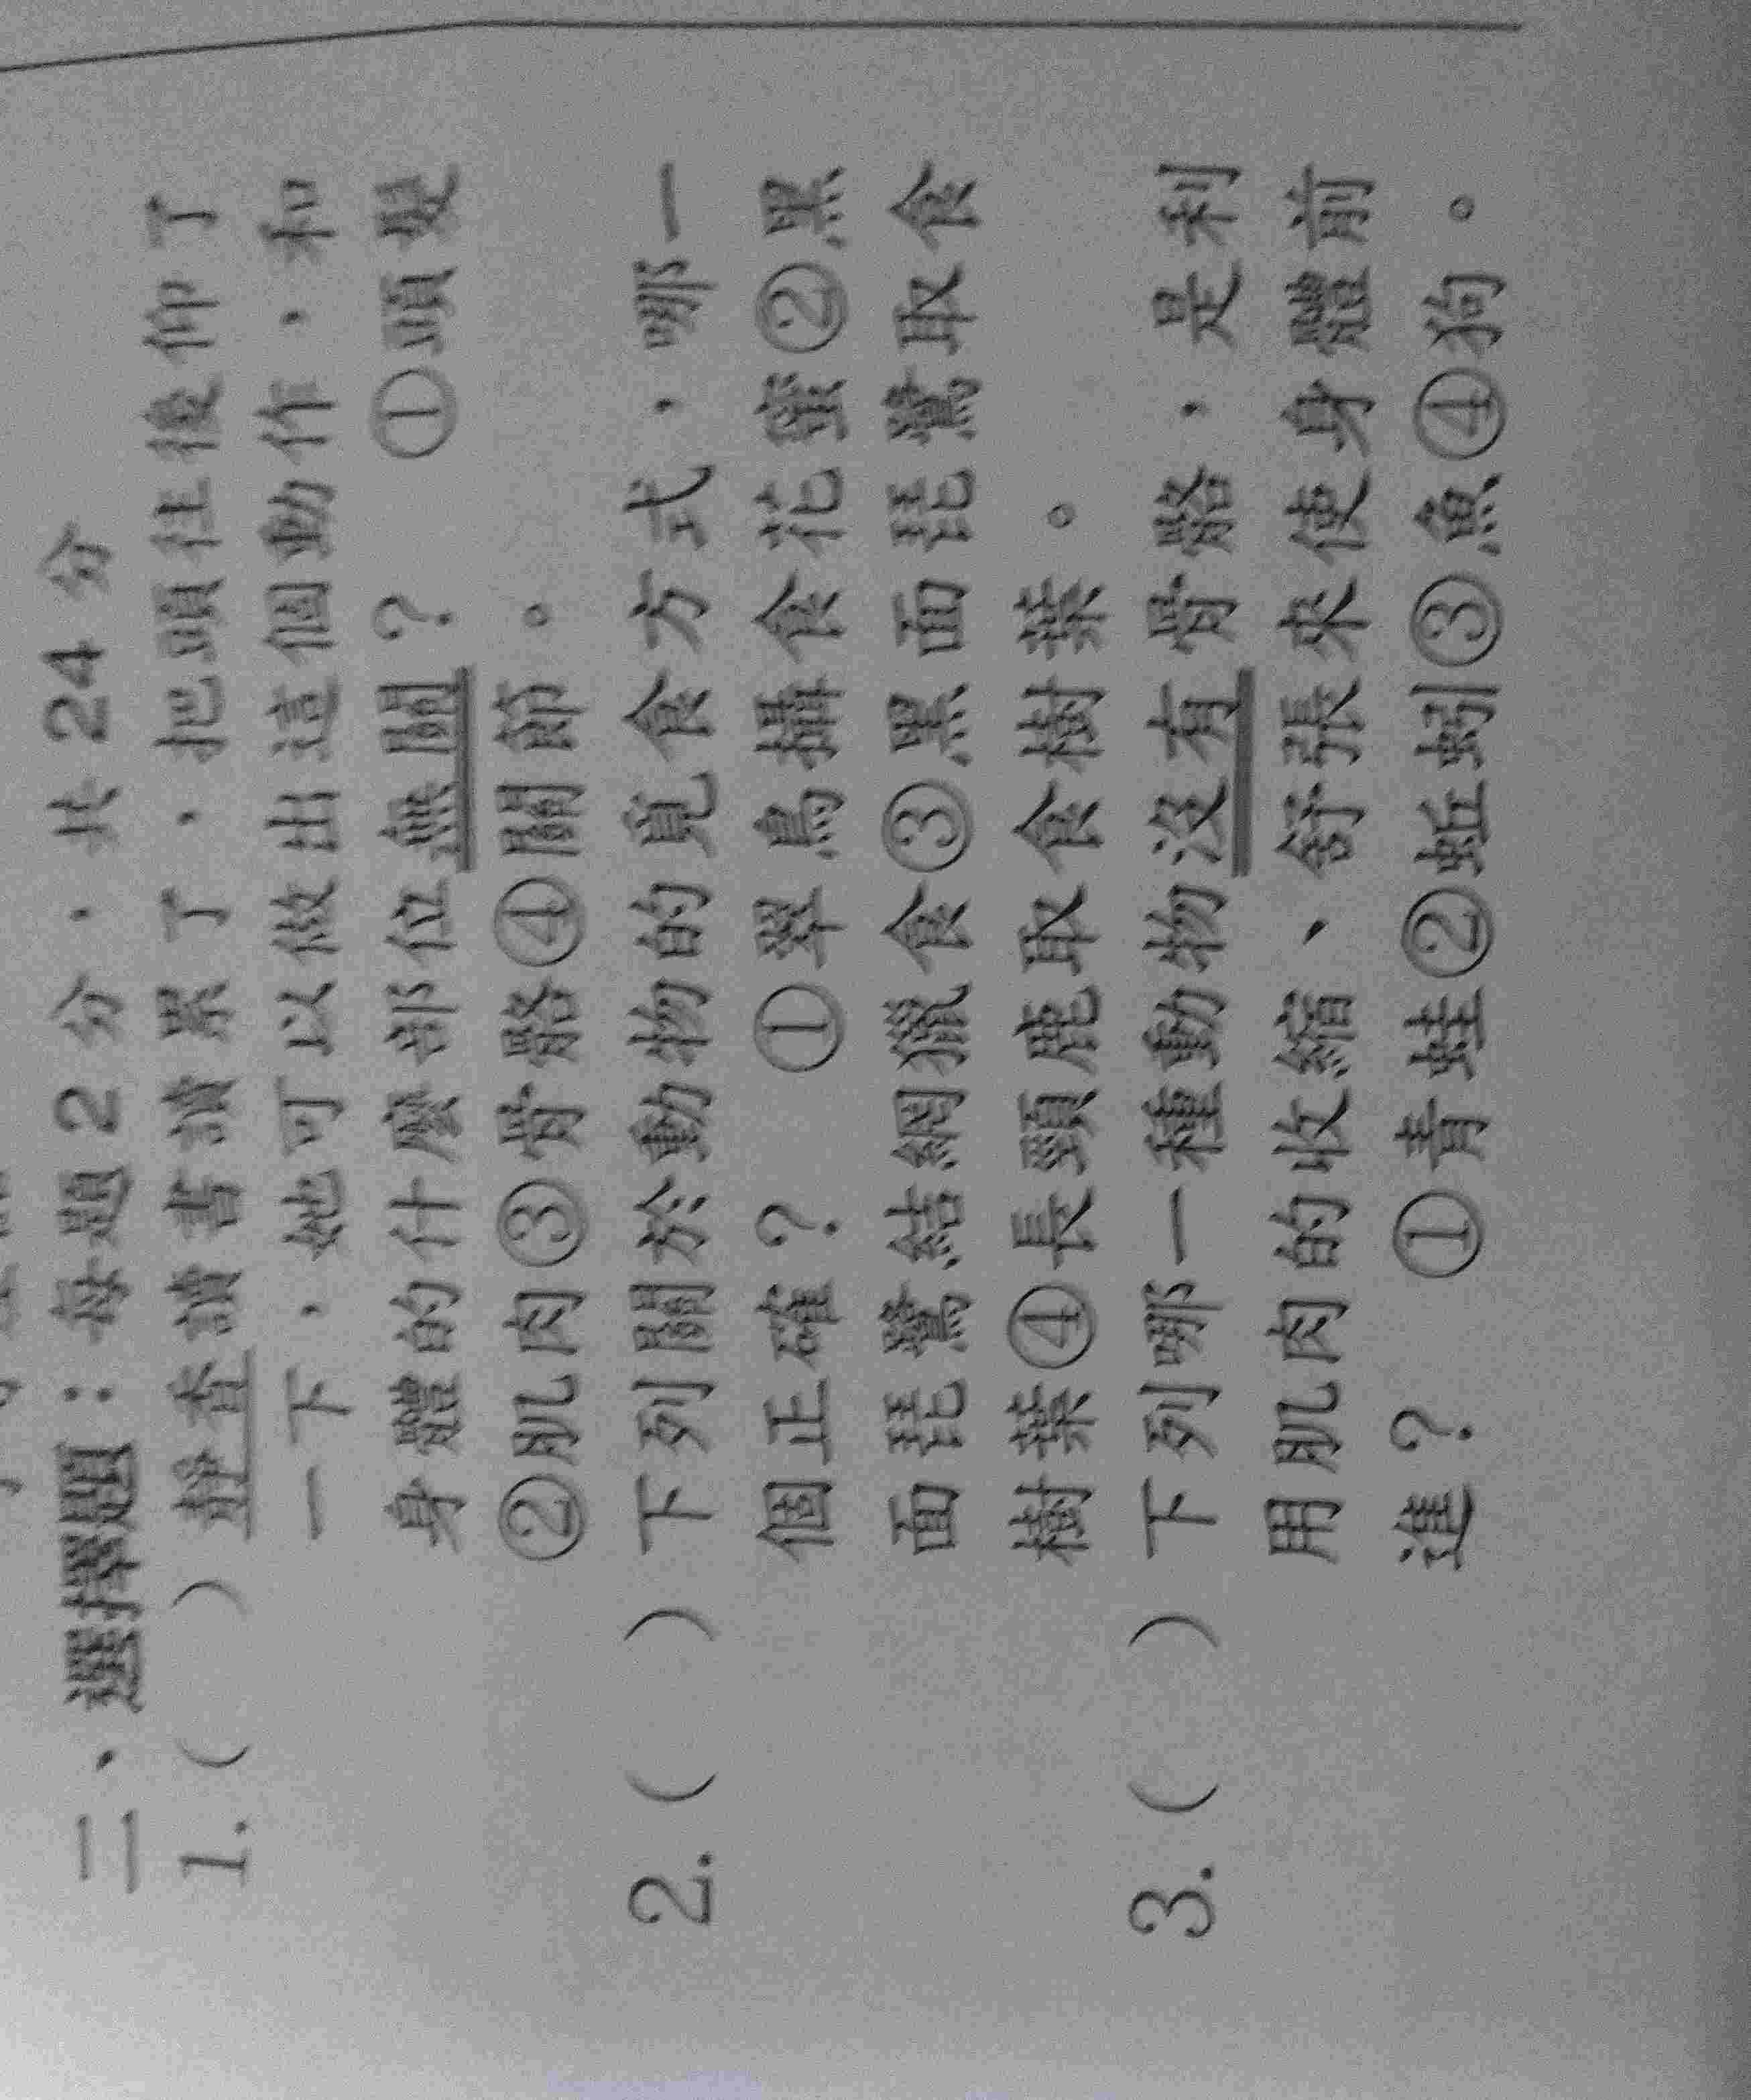 二、選擇題：每題2分，共24分
1.（　）靜香讀書讀累了，把頭往後仰了
一下，她可以做出這個動作，和
身體的什麼部位無關？　①頭髮
②肌肉③骨骼④關節。
2.（　）下列關於動物的覓食方式，哪一
個正確？　①翠鳥攝食花蜜②黑
面琵鷺結網獵食③黑面琵鷺取食
樹葉④長頸鹿取食樹葉。
3.（　）下列哪一種動物沒有骨骼，是利
用肌肉的收縮、舒張來使身體前
進？　①青蛙②蚯蚓③魚④狗。